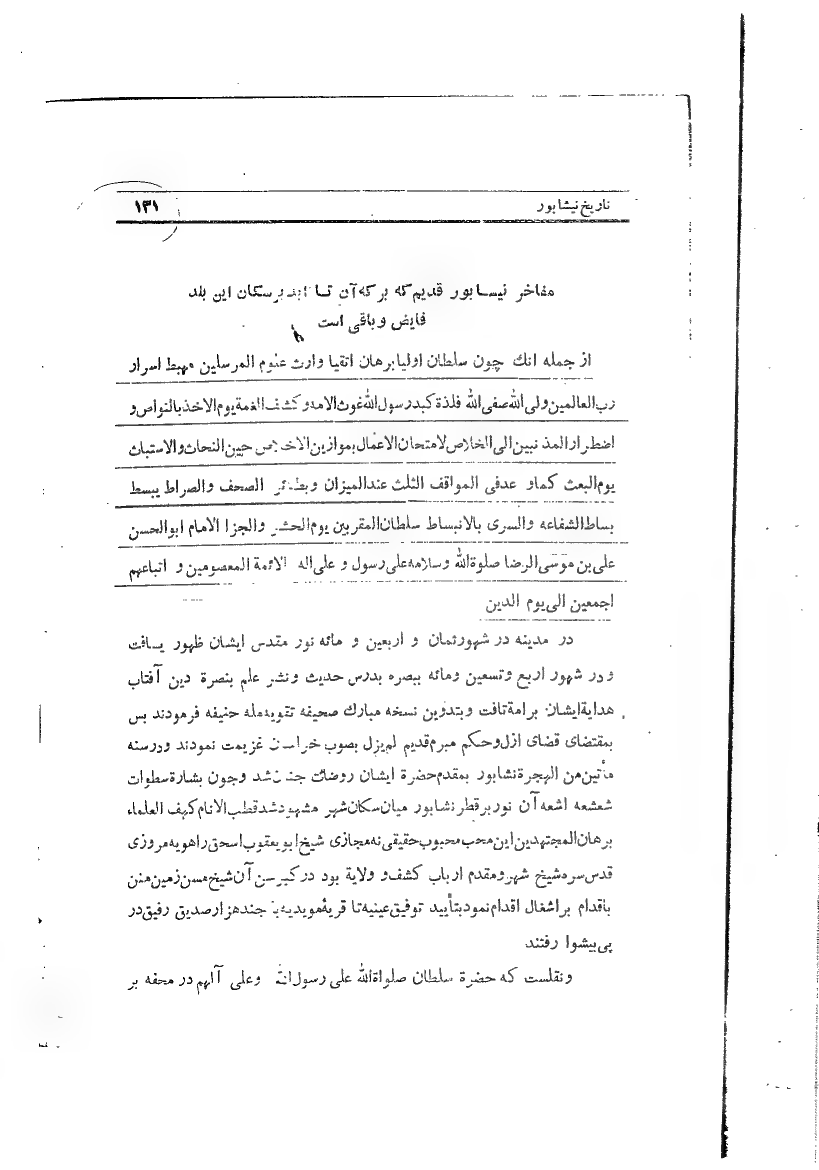 تاریخ نیشابور
۱۳۱
مفاخر نیسابور قدیم که برکه آن تا ابد بر سکان این بلد
فایض و باقی است
از جمله انك چون سلطان اولیا برهان اتقیا وارث علوم المرسلین مهبط اسرار
رب العالمین ولی الله صفی الله فلذة کبد رسول الله غوث الامه و کشف الغمة یوم الاخذ بالنواص و
اضطرار المذنبین الی الخلاص لامتحان الاعمال بموازین الاخلاص حین النحات والاستباث
یوم البعث کما و عدفی المواقف الثلث عند المیزان و الصحف والصراط یبسط
بساط الشفاعه والسری بالانبساط سلطان المقربین یوم الحشر والجزا الامام ابوالحسن
علی بن موسی الرضا صلوة الله وسلامه علی رسول و علی اله الائمة المعصومین و اتباعهم
اجمعین الی یوم الدین
در مدینه در شهور ثمان و اربعین و مائه نور مقدس ایشان ظهور یافت
و در شهور اربع و تسعین ومائه ببصره بدرس حدیث و نشر علم بنصرة دین آفتاب
هدایة ایشان برامة تافت و بتدوین نسخه مبارك صحیفه تقویه مله حنیفه فرمودند بس
بمقتضای قضای ازل و حکم مبرم قدیم لم یزل بصوب خراسان عزیمت نمودند و درسنه
مأتین من الهجرة نشابور بمقدم حضرة ایشان روضات جنت شد و چون بشارة سطوات
شعشعه اشعه آن نور بر قطر نشابور میان سکان شهر مشهود شد قطب الانام کهف العلماء
برهان المجتهدین این محب محبوب حقیقی نه مجازی شیخ ابو یعقوب اسحق راهویه مروزی
قدس سره شیخ شهر و مقدم ارباب کشف و ولایة بود در کبر سن آن شیخ مسن زمین منن
باقدام بر اشغال اقدام نمود بتأیید توفیق عینیه تا قریهٔ مویدیه با چند هزار صدیق رفیق در
پی پیشوا رفتند
ونقلست که حضرة سلطان صلواة الله علی رسول الله وعلی آلهم در محفه بر